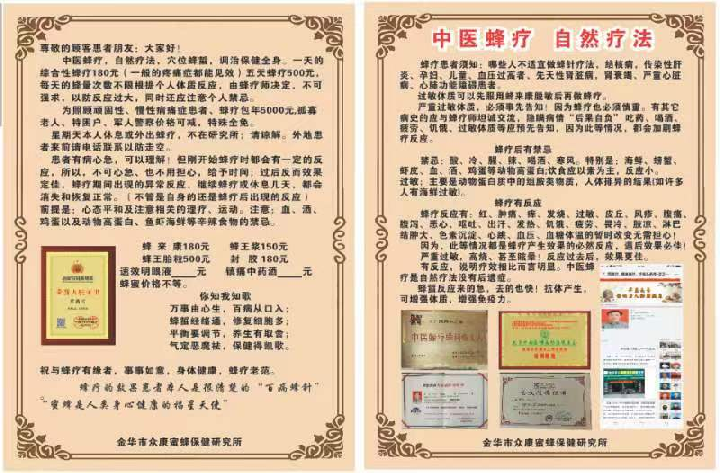 尊敬的顾客患者朋友：大家好！
中医蜂疗，自然疗法，穴位蜂蜇，调治保健全身。一天的
综合性蜂疗180元（一般的疼痛症都能见效）五天蜂疗500元，
每天的蜂量次数不限根据个人体质反应，由蜂疗师决定，不可
强求，以防反应过大，同时还应注意个人禁忌。
为照顾顽固性、慢性病痛症患者、蜂疗包年5000元，孤寡
老人、特困户、军人警察价格可减，特殊全免。
星期天本人休息或外出蜂疗，不在研究所；请谅解。外地患
者来前请电话联系以防走空。
患者有病心急，可以理解！但刚开始蜂疗时都会有一定的反
应，所以，不可心急、也不用担心，给予时间，过后反而效果
定佳，蜂疗期间出现的异常反应，继续蜂疗或休息几天，都会
消失和恢复正常。（不管是自身的还是蜂疗后出现的反应）
前提是：心态平和及注意相关的理疗、运动。注意：血、酒、
鸡蛋以及动物高蛋白、鱼虾海鲜等辛辣食物的禁忌。
蜂来康180元 蜂王浆150元
蜂王胎粉500元 封胶180元
速效明眼液____元 镇痛中药酒____元
蜂蜜价格不等。
你知我如歌
万事由心生，百病从口入；
蜂蜇经络通，修复细胞多；
平衡要调节，养生有取舍；
气定恶魔祛，保健得凯歌。
祝与蜂疗有缘者、事事如意，身体健康，蜂疗老范。
蜂疗的效甚患者本人是很清楚的“百病蜂针”
“蜜蜂是人类身心健康的福星天使”
金华市众康蜜蜂保健研究所
中医蜂疗 自然疗法
蜂疗患者须知：哪些人不适宜做蜂针疗法，经核病，传染性肝
炎、孕妇、儿童、血压过高者、先天性肾脏病，肾衰竭、严重心脏
病、心肺功能障碍患者。
过敏体质可以先服用蜂来康脱敏后再做蜂疗。
严重过敏体质，必须事先告知！因为蜂疗也必须慎重。有其它
病史的应与蜂疗师坦诚交流，隐瞒病情“后果自负”吃药、喝酒、
疲劳、饥饿、过敏体质等应预先告知，因为此等情况，都会加剧蜂
疗反应。
蜂疗后有禁忌
禁忌：酸、冷、腥、辣、喝酒、寒风。特别是：海鲜、螃蟹、
虾皮、血、酒、鸡蛋等动物高蛋白；饮食应以素为主，反应小。
过敏：主要是动物蛋白质中的组胺类物质，人体排异的结果（如许多
人有海鲜过敏）。
蜂疗有反应
蜂疗反应有：红、肿、痛、痒、发烧、过敏、皮丘、风疹、腹痛、
腹泻、恶心、呕吐、出汗、发热、饥饿、疲劳、畏冷、脱凉、淋巴
结肿大、色素沉淀、心跳、血压、血糖体温的暂时改变无需担心！
因为，此等情况都是蜂疗产生效果的必然反应，适后效果必佳！
严重过敏，高烧、甚至眩晕！反应过去后，效果更佳。
有反应，说明疗效相比而言明显。中医蜂
疗是自然疗法没有后遗症。
蜂蜇反应来的急，去的也快！抗体产生，
可增强体质，增强免疫力。
金华市众康蜜蜂保健研究所